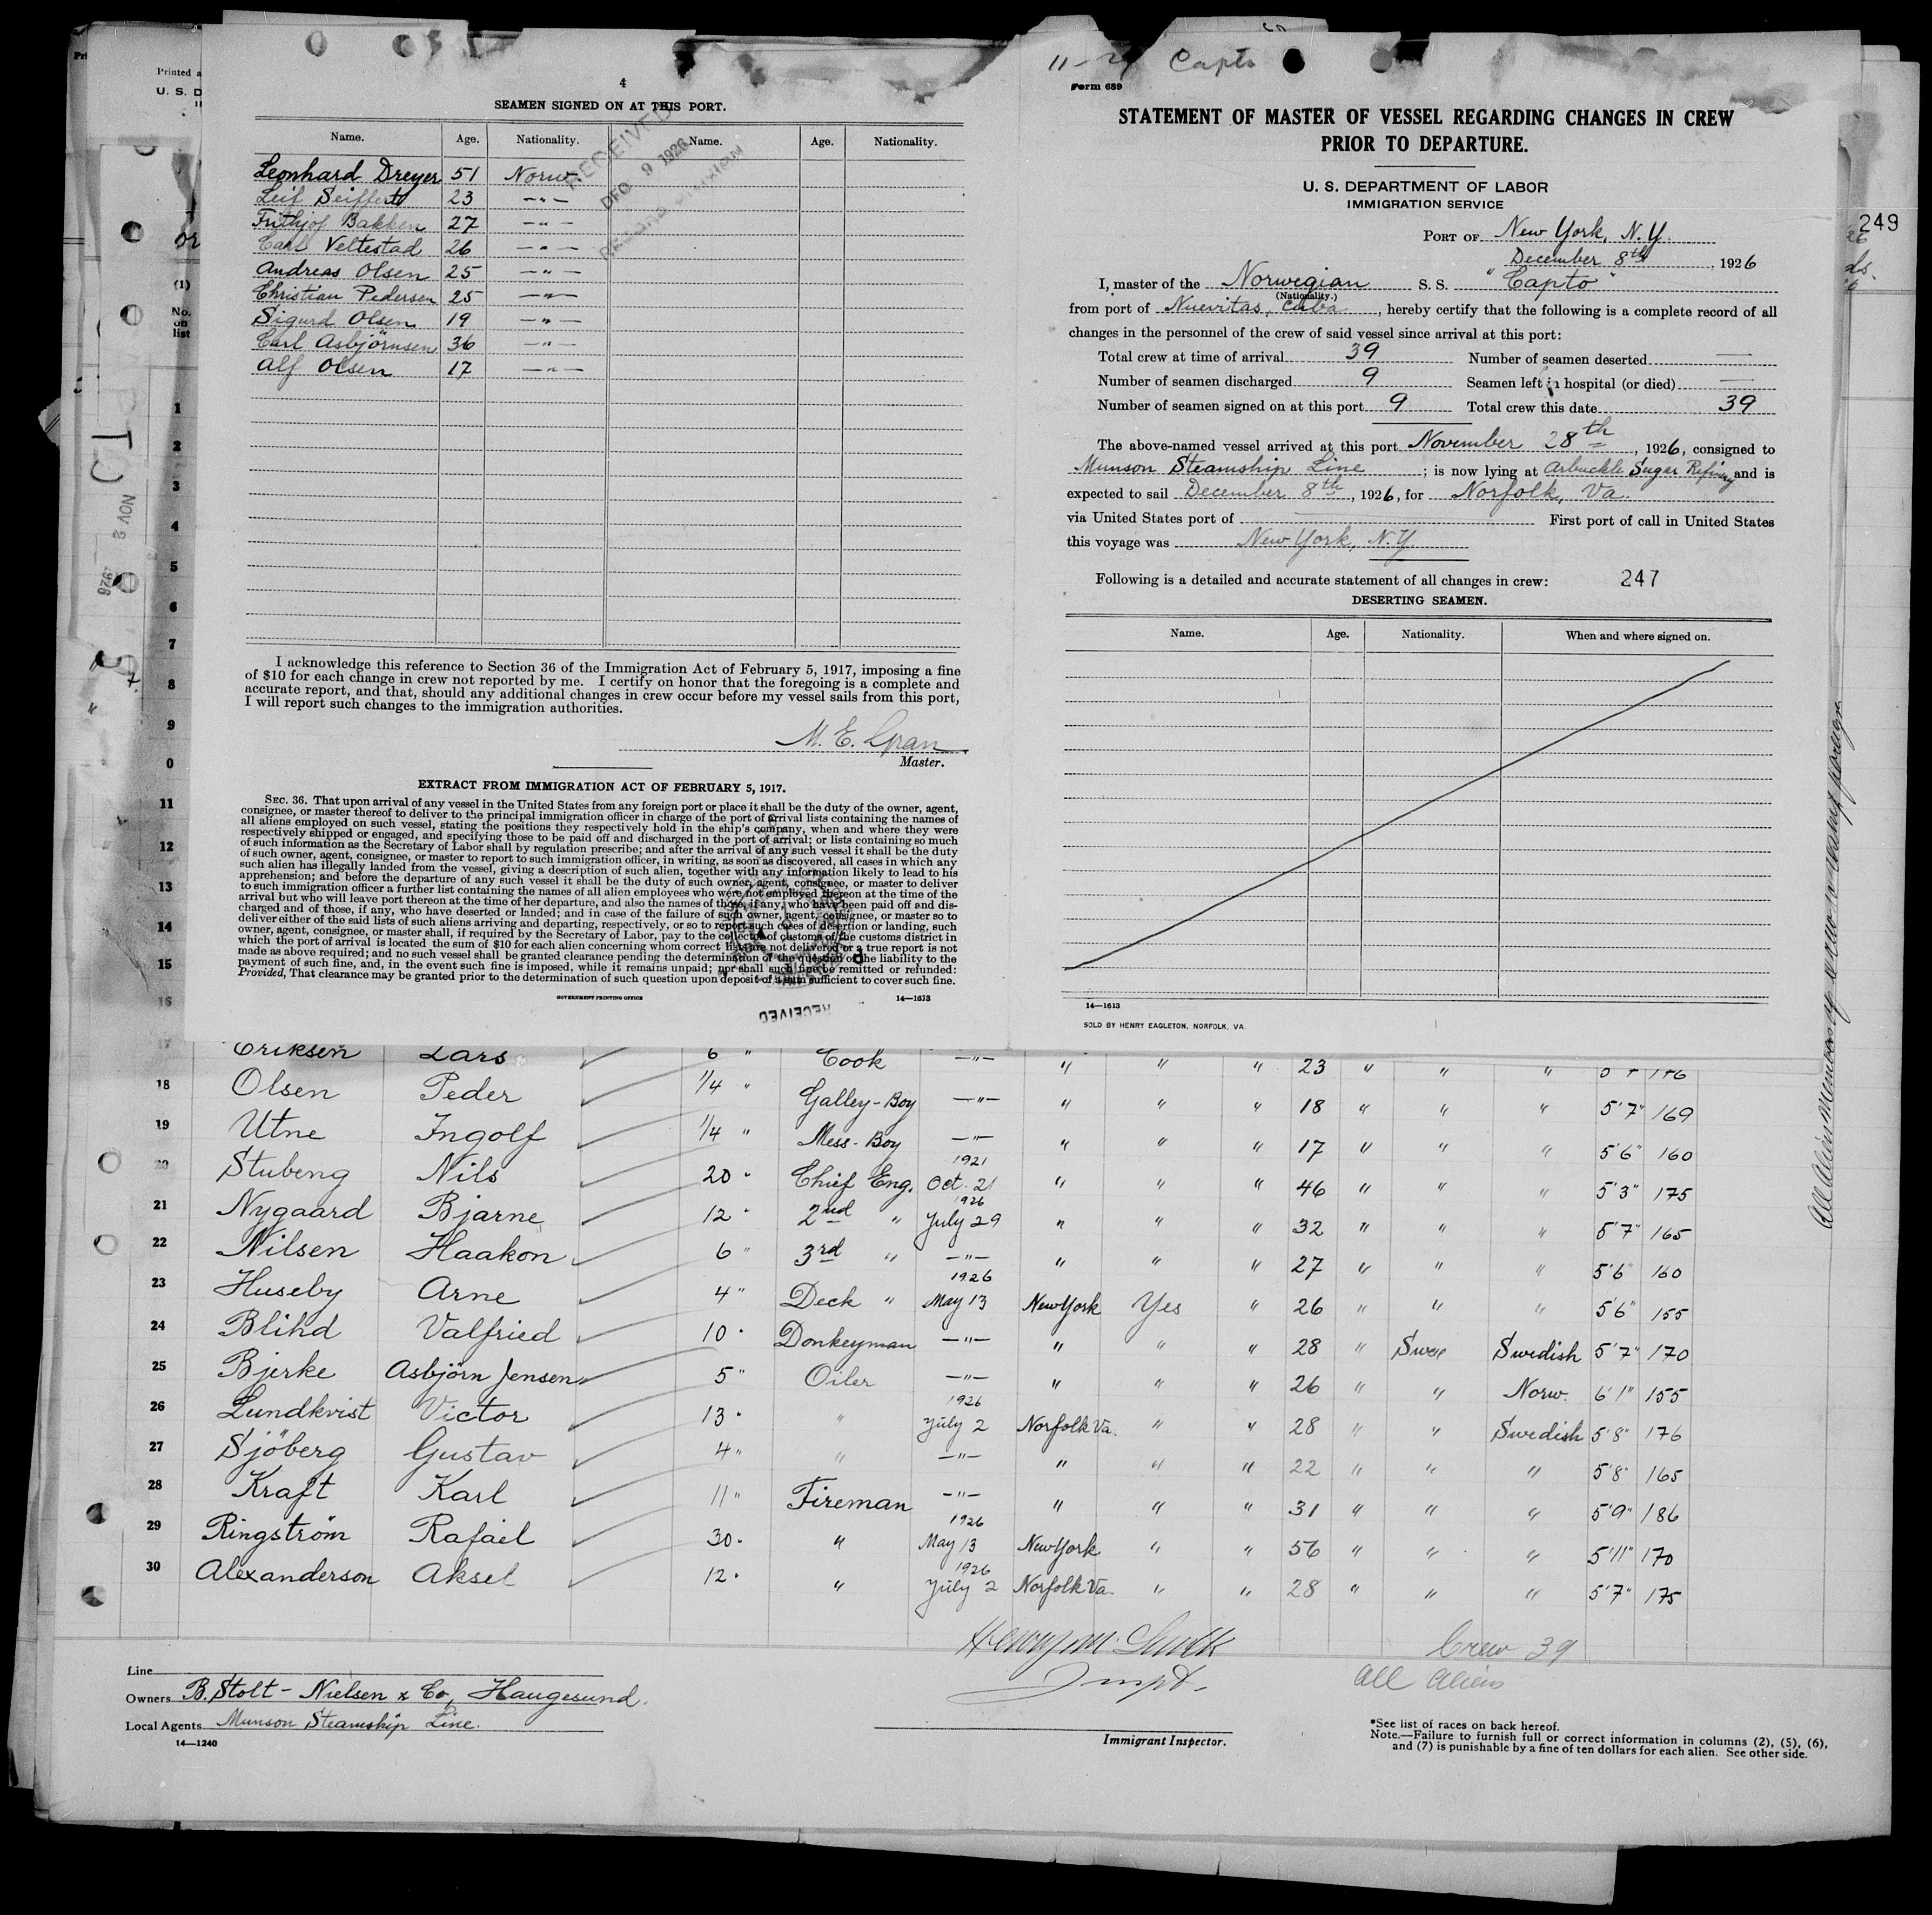 4
SEAMEN SIGNED ON AT THIS PORT.
Name. Age. Nationality. Name. Age. Nationality.
Leonhard Dreyer 51 Norw.
Leif Seiffert 23 —"—
Frithjof Bakken 27 —"—
Carl Veltestad 26 —"—
Andreas Olsen 25 —"—
Christian Pedersen 25 —"—
Sigurd Olsen 19 —"—
Carl Asbjörnsen 36 —"—
Alf Olsen 17 —"—
RECEIVED
DEC 9 1926
I acknowledge this reference to Section 36 of the Immigration Act of February 5, 1917, imposing a fine
of $10 for each change in crew not reported by me. I certify on honor that the foregoing is a complete and
accurate report, and that, should any additional changes in crew occur before my vessel sails from this port,
I will report such changes to the immigration authorities.
M. E. Gran
Master.
EXTRACT FROM IMMIGRATION ACT OF FEBRUARY 5, 1917.
SEC. 36. That upon arrival of any vessel in the United States from any foreign port or place it shall be the duty of the owner, agent,
consignee, or master thereof to deliver to the principal immigration officer in charge of the port of arrival lists containing the names of
all aliens employed on such vessel, stating the positions they respectively hold in the ship's company, when and where they were
respectively shipped or engaged, and specifying those to be paid off and discharged in the port of arrival; or lists containing so much
of such information as the Secretary of Labor shall by regulation prescribe; and after the arrival of any such vessel it shall be the duty
of such owner, agent, consignee, or master to report to such immigration officer, in writing, as soon as discovered, all cases in which any
such alien has illegally landed from the vessel, giving a description of such alien, together with any information likely to lead to his
apprehension; and before the departure of any such vessel it shall be the duty of such owner, agent, consignee, or master to deliver
to such immigration officer a further list containing the names of all alien employees who were not employed thereon at the time of the
arrival but who will leave port thereon at the time of her departure, and also the names of those, if any, who have been paid off and dis-
charged and of those, if any, who have deserted or landed; and in case of the failure of such owner, agent, consignee, or master so to
deliver either of the said lists of such aliens arriving and departing, respectively, or so to report such cases of desertion or landing, such
owner, agent, consignee, or master shall, if required by the Secretary of Labor, pay to the collector of customs of the customs district in
which the port of arrival is located the sum of $10 for each alien concerning whom correct lists are not delivered or a true report is not
made as above required; and no such vessel shall be granted clearance pending the determination of the question of the liability to the
payment of such fine, and, in the event such fine is imposed, while it remains unpaid; nor shall such fine be remitted or refunded:
Provided, That clearance may be granted prior to the determination of such question upon deposit of a sum sufficient to cover such fine.
GOVERNMENT PRINTING OFFICE 14—1613
RECEIVED
Capto
Form 689
STATEMENT OF MASTER OF VESSEL REGARDING CHANGES IN CREW
PRIOR TO DEPARTURE.
U. S. DEPARTMENT OF LABOR
IMMIGRATION SERVICE
PORT OF New York, N.Y.
December 8th, 1926
I, master of the Norwegian S. S. "Capto"
(Nationality.)
from port of Nuevitas, Cuba, hereby certify that the following is a complete record of all
changes in the personnel of the crew of said vessel since arrival at this port:
Total crew at time of arrival 39 Number of seamen deserted —
Number of seamen discharged 9 Seamen left in hospital (or died) —
Number of seamen signed on at this port 9 Total crew this date 39
The above-named vessel arrived at this port November 28th, 1926, consigned to
Munson Steamship Line; is now lying at Arbuckle Sugar Refinery and is
expected to sail December 8th, 1926, for Norfolk, Va.
via United States port of First port of call in United States
this voyage was New York, N.Y.
Following is a detailed and accurate statement of all changes in crew: 247
DESERTING SEAMEN.
Name. Age. Nationality. When and where signed on.
14—1613
SOLD BY HENRY EAGLETON, NORFOLK, VA.
249
Printed a
U. S. D
or
(1)
No. on list
NOV 28 1926
1
2
3
4
5
6
7
8
9
0
11
12
13
14
15
16
17 Eriksen Lars 6 " Cook —"— " " " 23 " " "
18 Olsen Peder 1/4 " Galley-Boy —"— " " " 18 " " " 5'7" 169
19 Utne Ingolf 1/4 " Mess-Boy —"— " " " 17 " " " 5'6" 160
20 Stubeng Nils 20 " Chief Eng. 1921 Oct. 21 " " " 46 " " " 5'3" 175
21 Nygaard Bjarne 12 " 2nd " 1926 July 29 " " " 32 " " " 5'7" 165
22 Nilsen Haakon 6 " 3rd " —"— " " " 27 " " " 5'6" 160
23 Huseby Arne 4 " Deck " 1926 May 13 New York Yes " 26 " " " 5'6" 155
24 Blihd Valfried 10 " Donkeyman —"— " " " 28 " Swe Swedish 5'7" 170
25 Bjerke Asbjörn Jensen 5 " Oiler —"— " " " 26 " " Norw. 6'1" 155
26 Lundkvist Victor 13 " " 1926 July 2 Norfolk Va. " " 28 " " Swedish 5'8" 176
27 Sjöberg Gustav 4 " " —"— " " " 22 " " " 5'8" 165
28 Kraft Karl 11 " Fireman —"— " " " 31 " " " 5'9" 186
29 Ringström Rafael 30 " " 1926 May 13 New York " " 56 " " " 5'11" 170
30 Alexanderson Aksel 12 " " 1926 July 2 Norfolk Va. " " 28 " " " 5'7" 175
Crew 39
All aliens
Line
Owners B. Stolt-Nielsen & Co, Haugesund.
Local Agents Munson Steamship Line.
14—1240
Immigrant Inspector.
*See list of races on back hereof.
Note.—Failure to furnish full or correct information in columns (2), (5), (6),
and (7) is punishable by a fine of ten dollars for each alien. See other side.